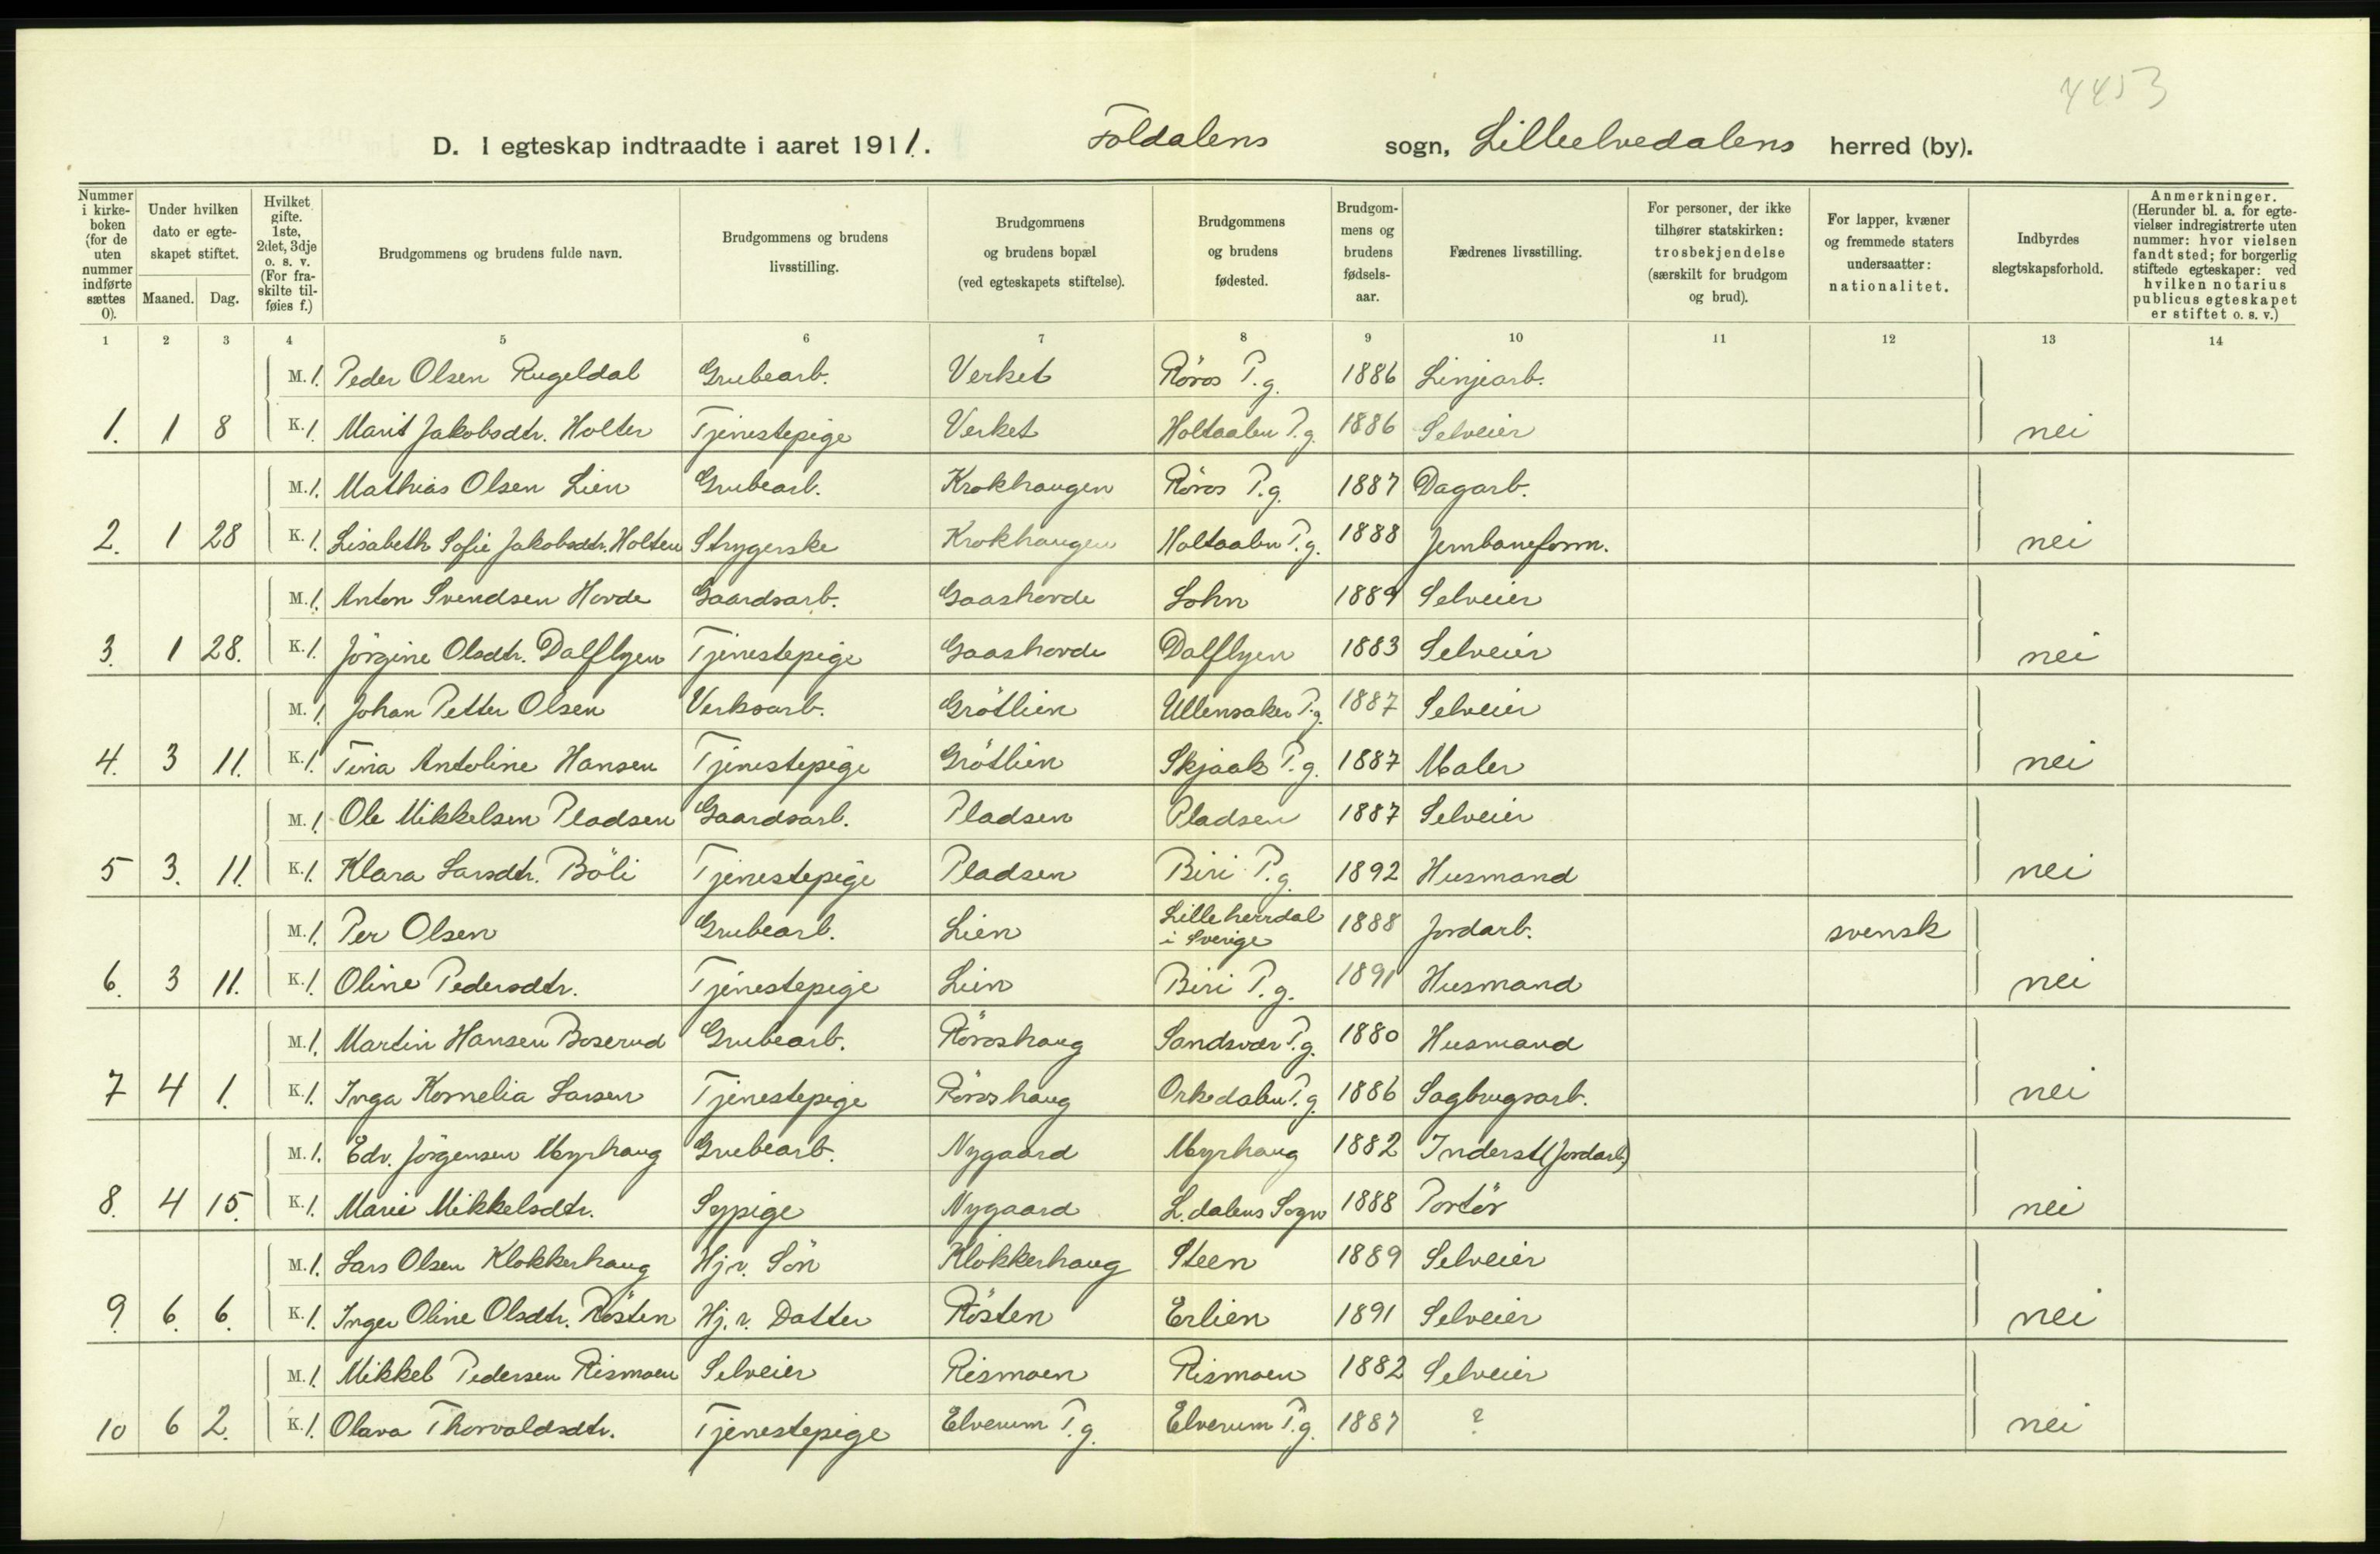 4453
D. I egteskap indtraadte i aaret 1911. Foldalens sogn, Lilleelvedalens herred (by).
Nummer i kirkeboken (for de uten nummer indførte sættes 0). | Under hvilken dato er egteskapet stiftet. Maaned. | Dag. | Hvilket gifte. 1ste, 2det, 3dje o. s. v. (For fraskilte tilføies f.) | Brudgommens og brudens fulde navn. | Brudgommens og brudens livsstilling. | Brudgommens og brudens bopæl (ved egteskapets stiftelse). | Brudgommens og brudens fødested. | Brudgommens og brudens fødselsaar. | Fædrenes livsstilling. | For personer, der ikke tilhører statskirken: trosbekjendelse (særskilt for brudgom og brud). | For lapper, kvæner og fremmede staters undersaatter: nationalitet. | Indbyrdes slegtskapsforhold. | Anmerkninger. (Herunder bl. a. for egtevielser indregistrerte uten nummer: hvor vielsen fandt sted; for borgerlig stiftede egteskaper: ved hvilken notarius publicus egteskapet er stiftet o. s. v.)
1 2 3 4 5 6 7 8 9 10 11 12 13 14
M. 1. Peder Olsen Rugeldal Grubearb. Verket Röros P.g. 1886 Linjearb.
1. 1 8 K. 1. Marit Jakobsdtr. Holter Tjenestepige Verket Holtaalen P.g. 1886 Selveier nei
M. 1. Mathias Olsen Lien Grubearb. Krokhaugen Röros P.g. 1887 Dagarb.
2. 1 28 K. 1. Lisabeth Sofie Jakobsdtr. Holten Strygerske Krokhaugen Holtaalen P.g. 1888 Jernbaneform. nei
M. 1. Anton Svendsen Hovde Gaardsarb. Gaashovde Sohn 1889 Selveier
3. 1 28. K. 1. Jörgine Olsdtr. Dalflyen Tjenestepige Gaashovde Dalflyen 1883 Selveier nei
M. 1. Johan Petter Olsen Verksarb. Grötlien Ullensaker P.g. 1887 Selveier
4. 3 11. K. 1. Tina Antoline Hansen Tjenestepige Grötlien Skjaak P.g. 1887 Maler nei
M. 1. Ole Mikkelsen Pladsen Gaardsarb. Pladsen Pladsen 1887 Selveier
5 3. 11. K. 1. Klara Larsdtr. Böli Tjenestepige Pladsen Biri P.g. 1892 Husmand nei
M. 1. Per Olsen Grubearb. Lien Lilleherrdal i Sverige 1888 Jordarb. svensk
6. 3 11. K. 1. Oline Pedersdtr. Tjenestepige Lien Biri P.g. 1891 Husmand nei
M. 1. Martin Hansen Boserud Grubearb. Röroshaug Sandsvær P.g. 1880 Husmand
7 4 1. K. 1. Inga Kornelia Larsen Tjenestepige Röroshaug Orkedalen P.g. 1886 Sagbrugsarb. nei
M. 1. Edv. Jörgensen Myrhaug Grubearb. Nygaard Myrhaug 1882 Inderst (Jordarb.)
8. 4 15. K. 1. Marie Mikkelsdtr. Sypige Nygaard L.dalens Sogn 1888 Portör nei
M. 1. Lars Olsen Klokkerhaug Hj.v. Sön Klokkerhaug Steen 1889 Selveier
9. 6. 6. K. 1. Inger Oline Olsdtr. Rösten Hj.v. Datter Rösten Erlien 1891 Selveier nei
M. 1. Mikkel Pedersen Rismoen Selveier Rismoen Rismoen 1882 Selveier
10 6 2. K. 1. Olava Thorvaldsdtr. Tjenestepige Elverum P.g. Elverum P.g. 1887 ? nei